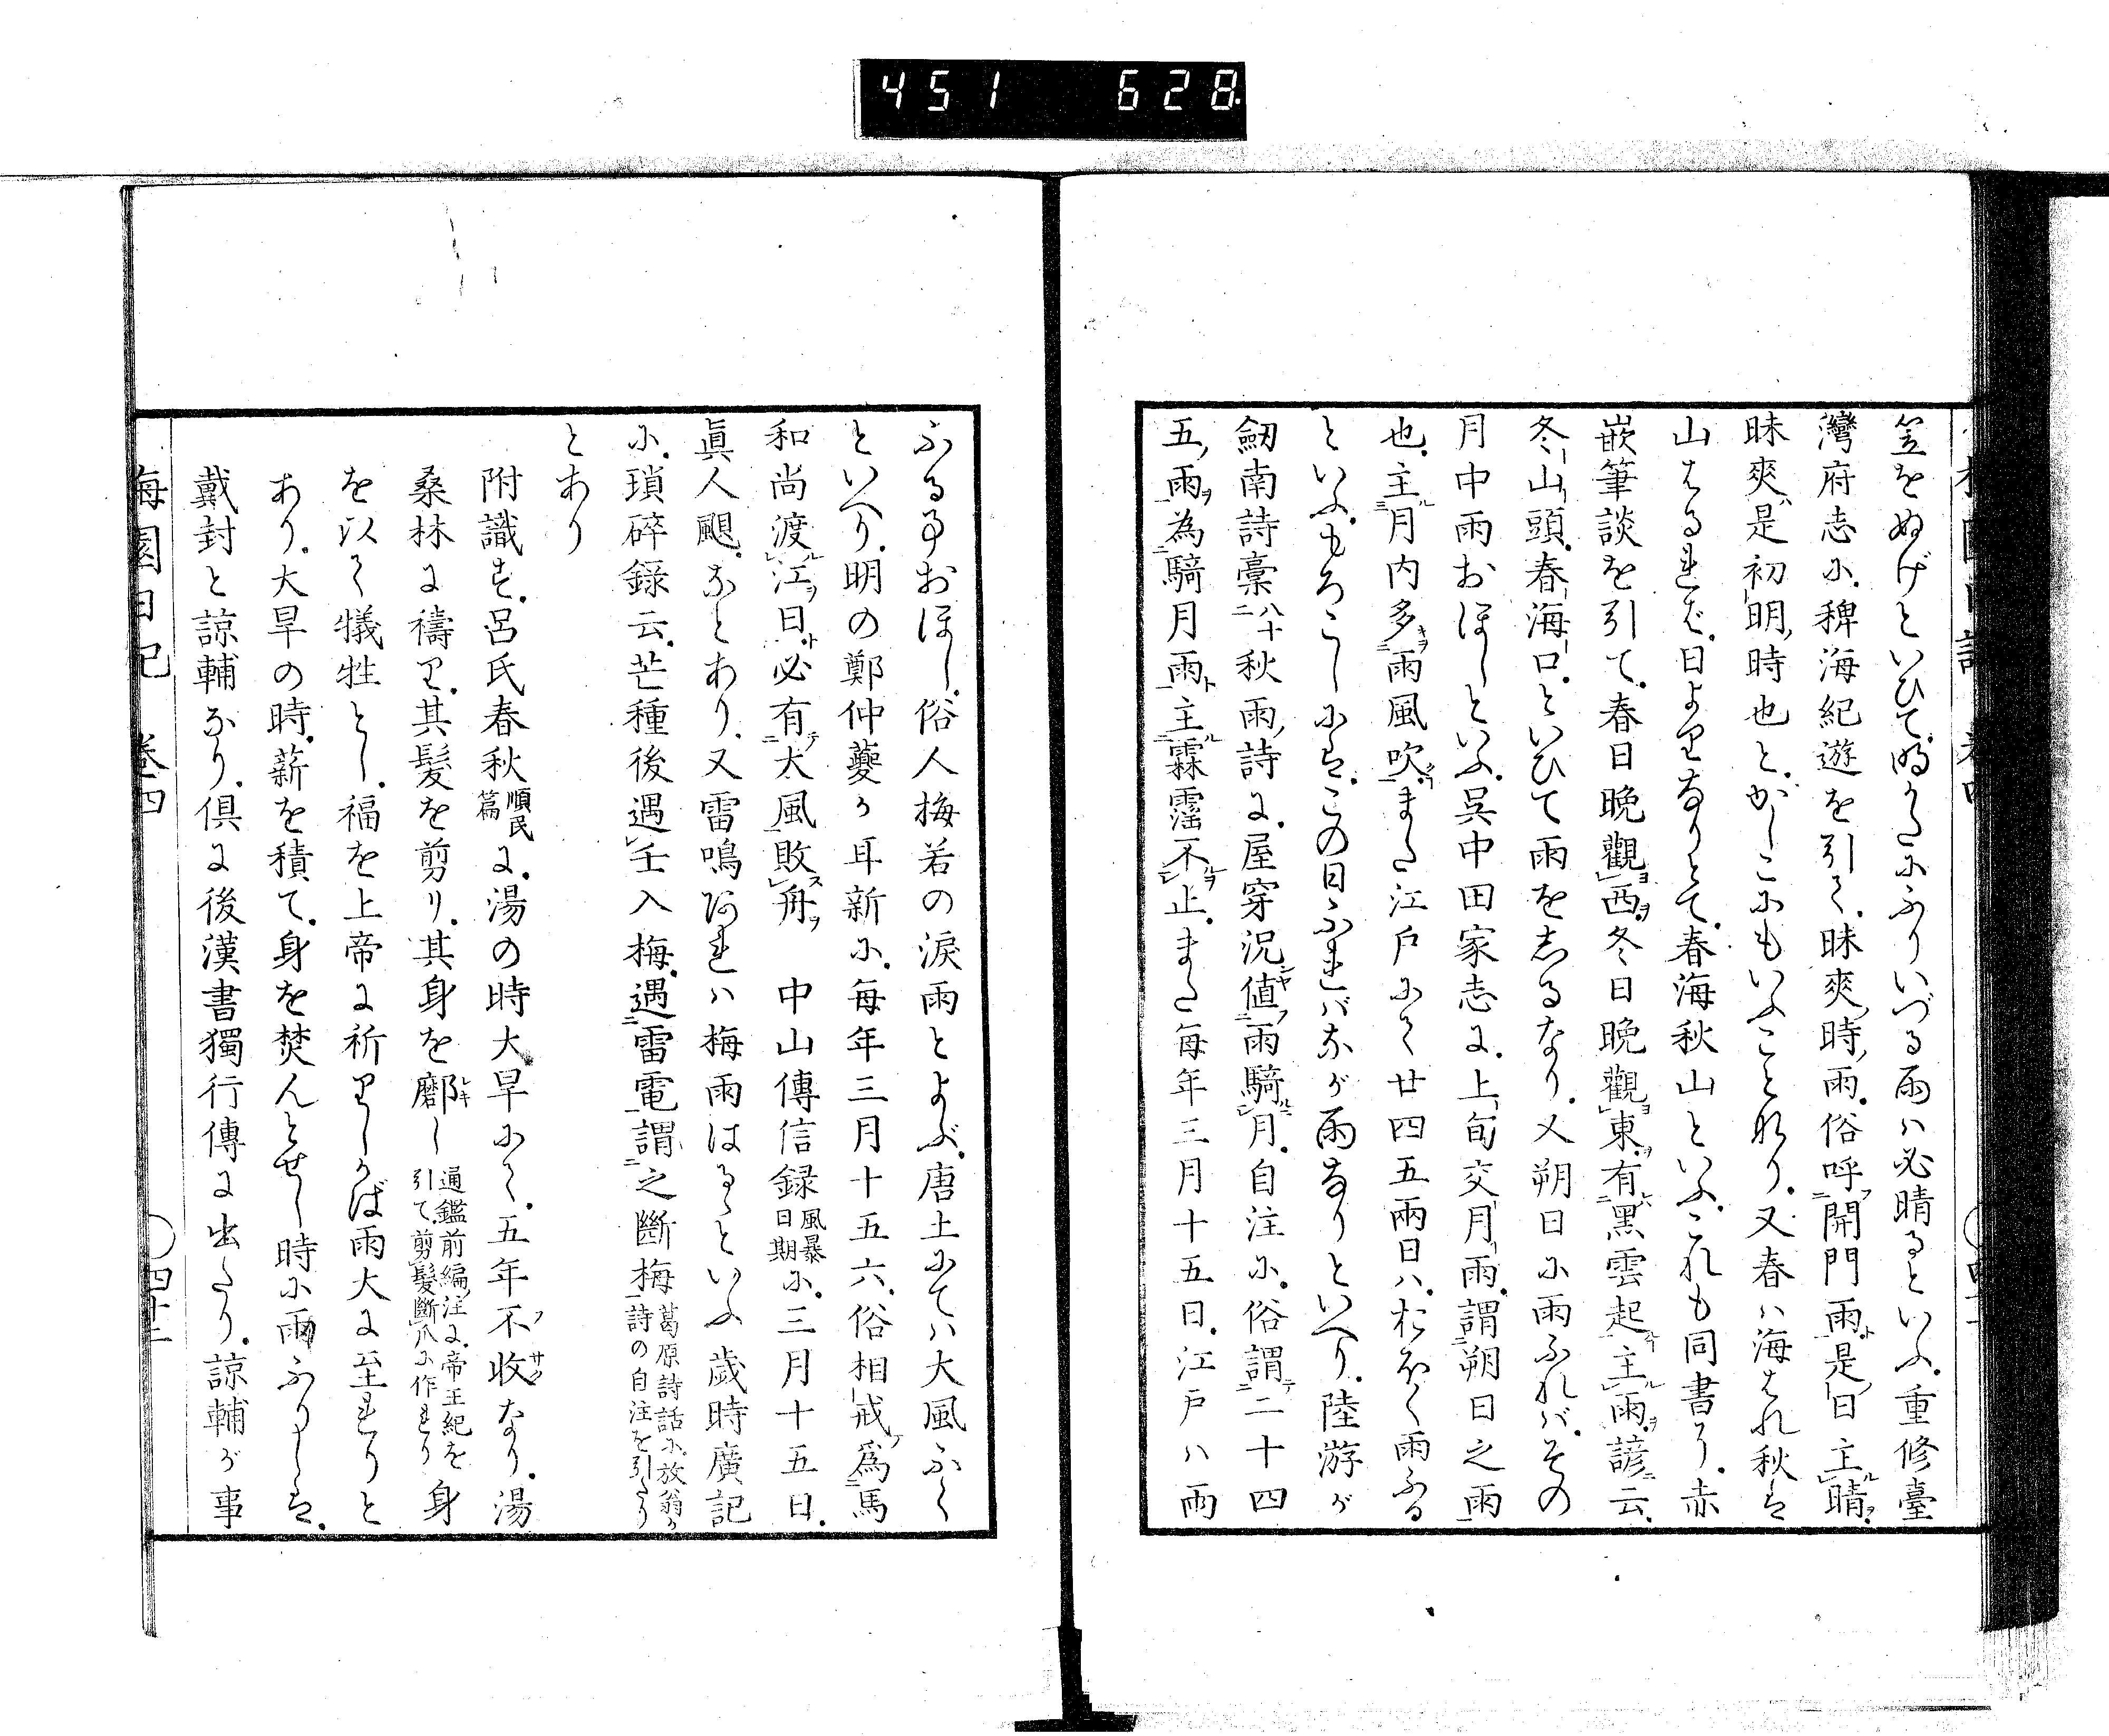 451 628
笠をぬげといひて明かたにふりいづる雨ハ必晴るといふ重修臺
灣府志に稗海紀遊を引て昧爽時雨俗呼開門雨是日主晴
昧爽是初明時也とぞしこにもいふことなり又春ハ海はれ秋は
山はるれば日よりなりとて春海秋山といふこれも同書に赤
嵌筆談を引て春日晩觀西冬日晩觀東有黑雲起主雨諺云
冬山頭春海口といひて雨をしるなり又朔日に雨ふればその
月中雨おほしといふ呉中田家志に上旬交月雨謂朔日之雨
也主月内多雨風吹また江戸にて廿四五兩日ハおほく雨ふる
といふもろこしには この日ふれバ なが雨なりといへり陸游が
劔南詩稾八十二秋雨詩に屋穿況値雨騎月自注に俗謂二十四
五雨為騎月雨主霖霪不止また毎年三月十五日江戸ハ雨
ふる事おほし俗人梅若の涙雨とよぶ唐土にてハ大風ふく
といへり明の鄭仲夔が耳新に毎年三月十五六俗相戒爲馬
和尚渡江日必有大風敗舟 中山傳信録風暴日期に三月十五日
眞人颶などあり又雷鳴あれハ梅雨はるゝといふ歳時廣記
に瑣碎録云芒種後遇壬入梅遇雷電謂之斷梅葛原詩話に放翁が詩の自注を引たり
とあり
附識す呂氏春秋順民篇に湯の時大旱にて五年不收なり湯
桑林に禱り其髪を剪り其身を磨し通鑑前編注に帝王紀を引て剪髮斷爪に作れり身
を以て犠牲とし福を上帝に祈りしかば雨大に至れりと
あり大旱の時薪を積て身を焚んとせし時に雨ふりしは
戴封と諒輔なり倶に後漢書獨行傳に出たり諒輔が事
梅園日記 卷四 四十二